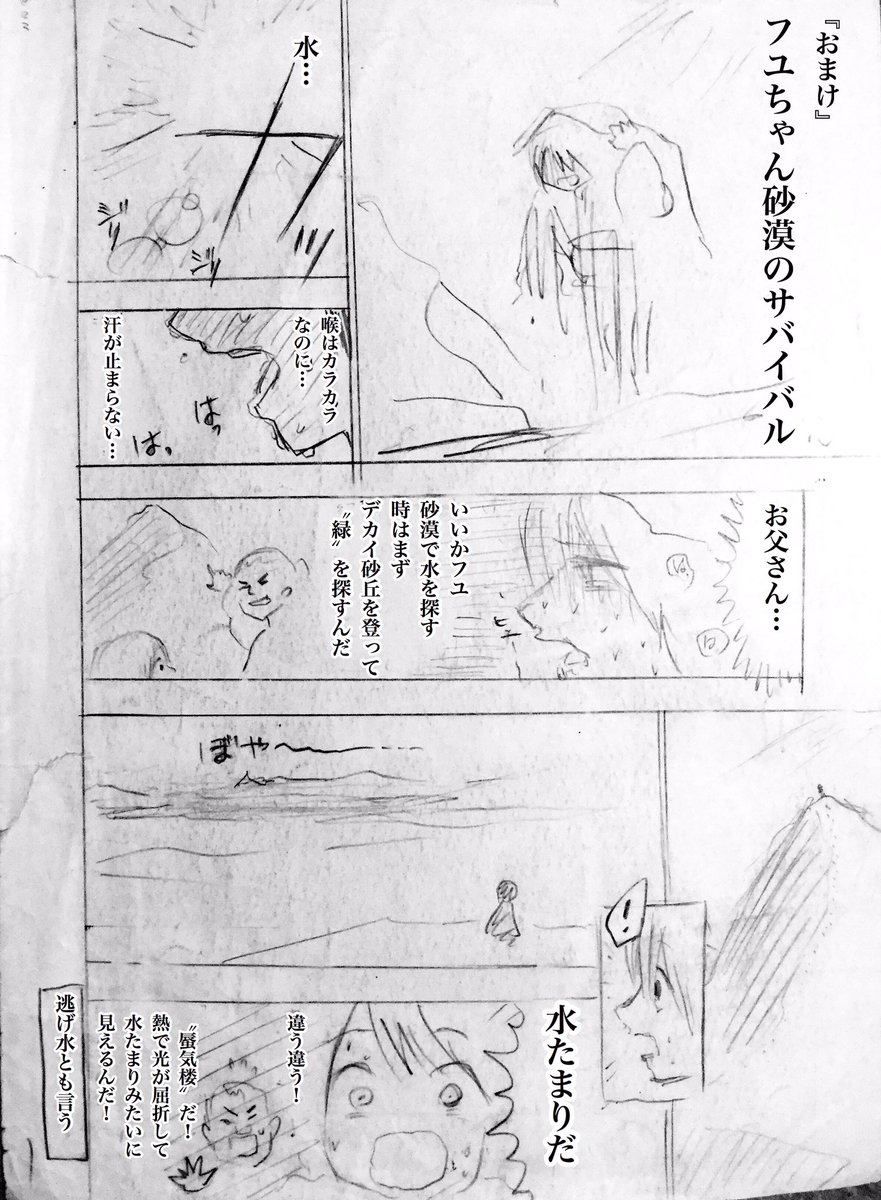 『おまけ』
フユちゃん砂漠のサバイバル
水…
カッ
ジリ
ジリ
喉はカラカラ
なのに…
汗が止まらない…
はっ
はっ
お父さん…
ヒュー
いいかフユ
砂漠で水を探す
時はまず
デカイ砂丘を登って
〝緑〟を探すんだ
!
ぼや〜
水たまりだ
違う違う!
〝蜃気楼〟だ!
熱で光が屈折して
水たまりみたいに
見えるんだ!
逃げ水とも言う